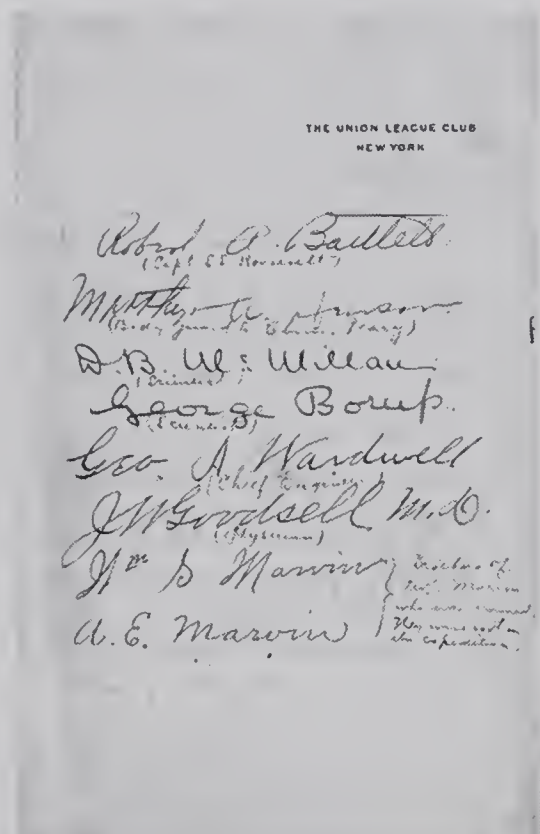 THE UNION LEAGUE CLUB
NEW YORK
Robert A. Bartlett.
(Capt S.S. Roosevelt)
Matthew A. Henson
(Body guard to Comdr. Peary)
D. B. McMillan
(Scientist)
George Borup.
(Scientist)
Geo. A Wardwell
(Chief Engineer)
J W Goodsell M.D.
(Physician)
Wm S Marvin
A. E. Marvin
Brothers of
Prof. Marvin
who was drowned.
They were not on
the expedition.